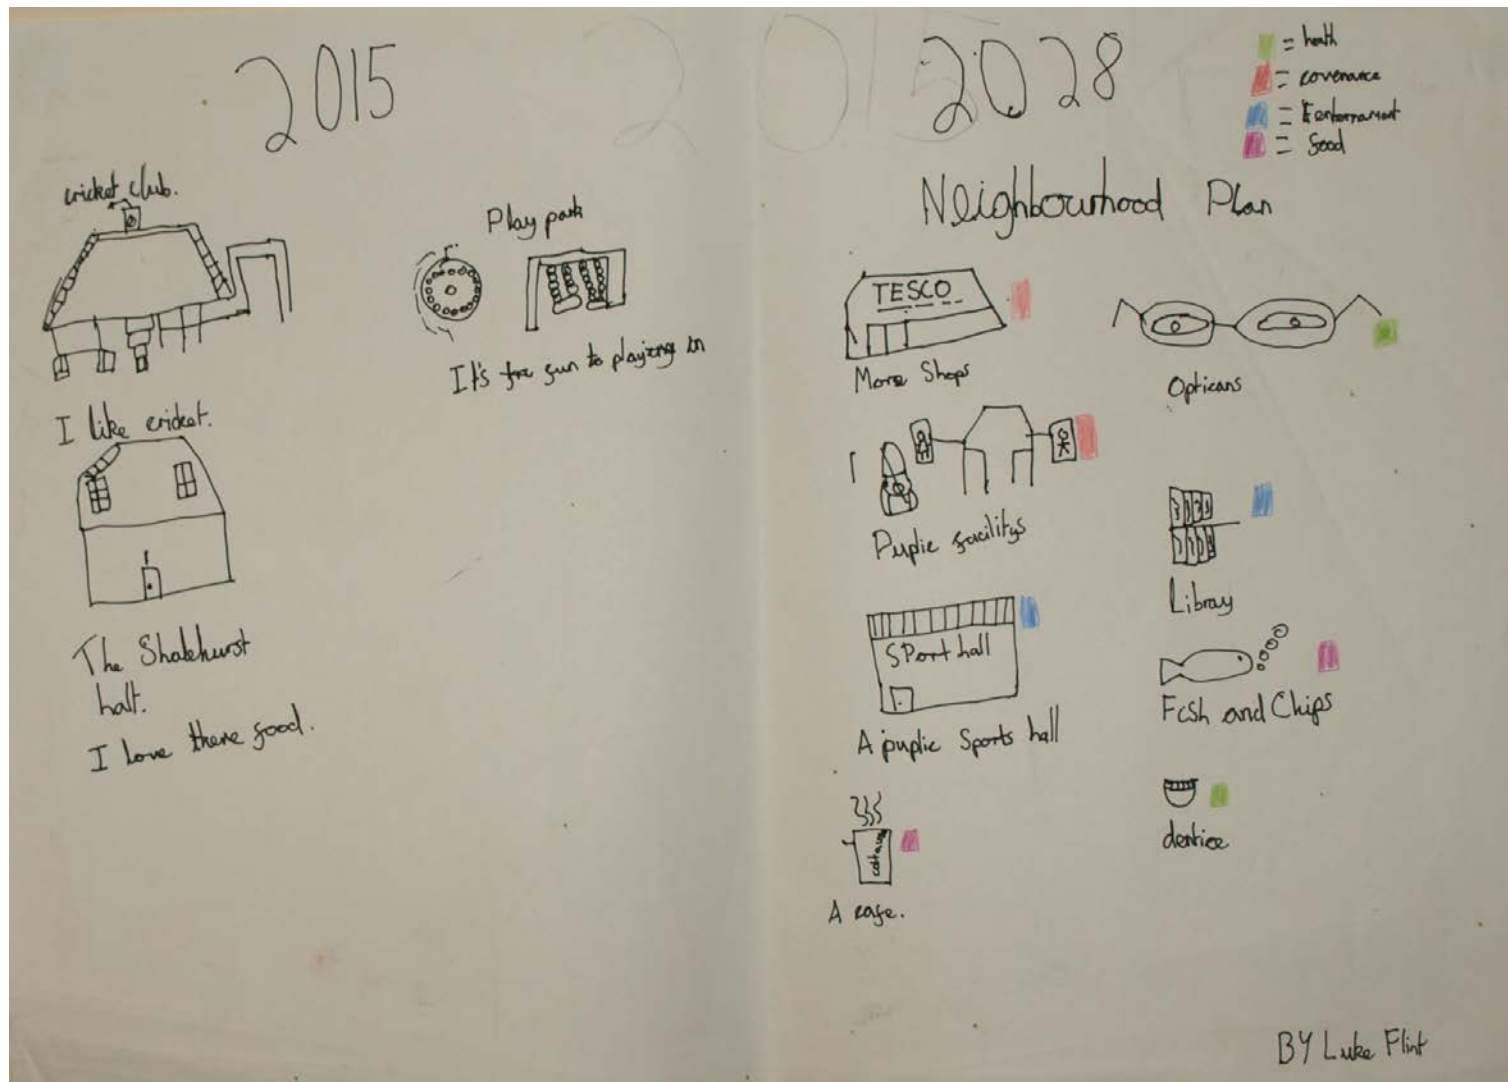 2015
cricket club.
I like cricket.
The Shakehurst
halt.
I love there food.
Play park
It's fun to playing in
2015
2028
= health
= covenance
= Entornament
= food
Neighbourhood Plan
TESCO
More Shops
Opticans
Puplic facilitys
Libray
SPort hall
A puplic Sports hall
Fish and Chips
A cafe.
dentice
BY Luke Flint